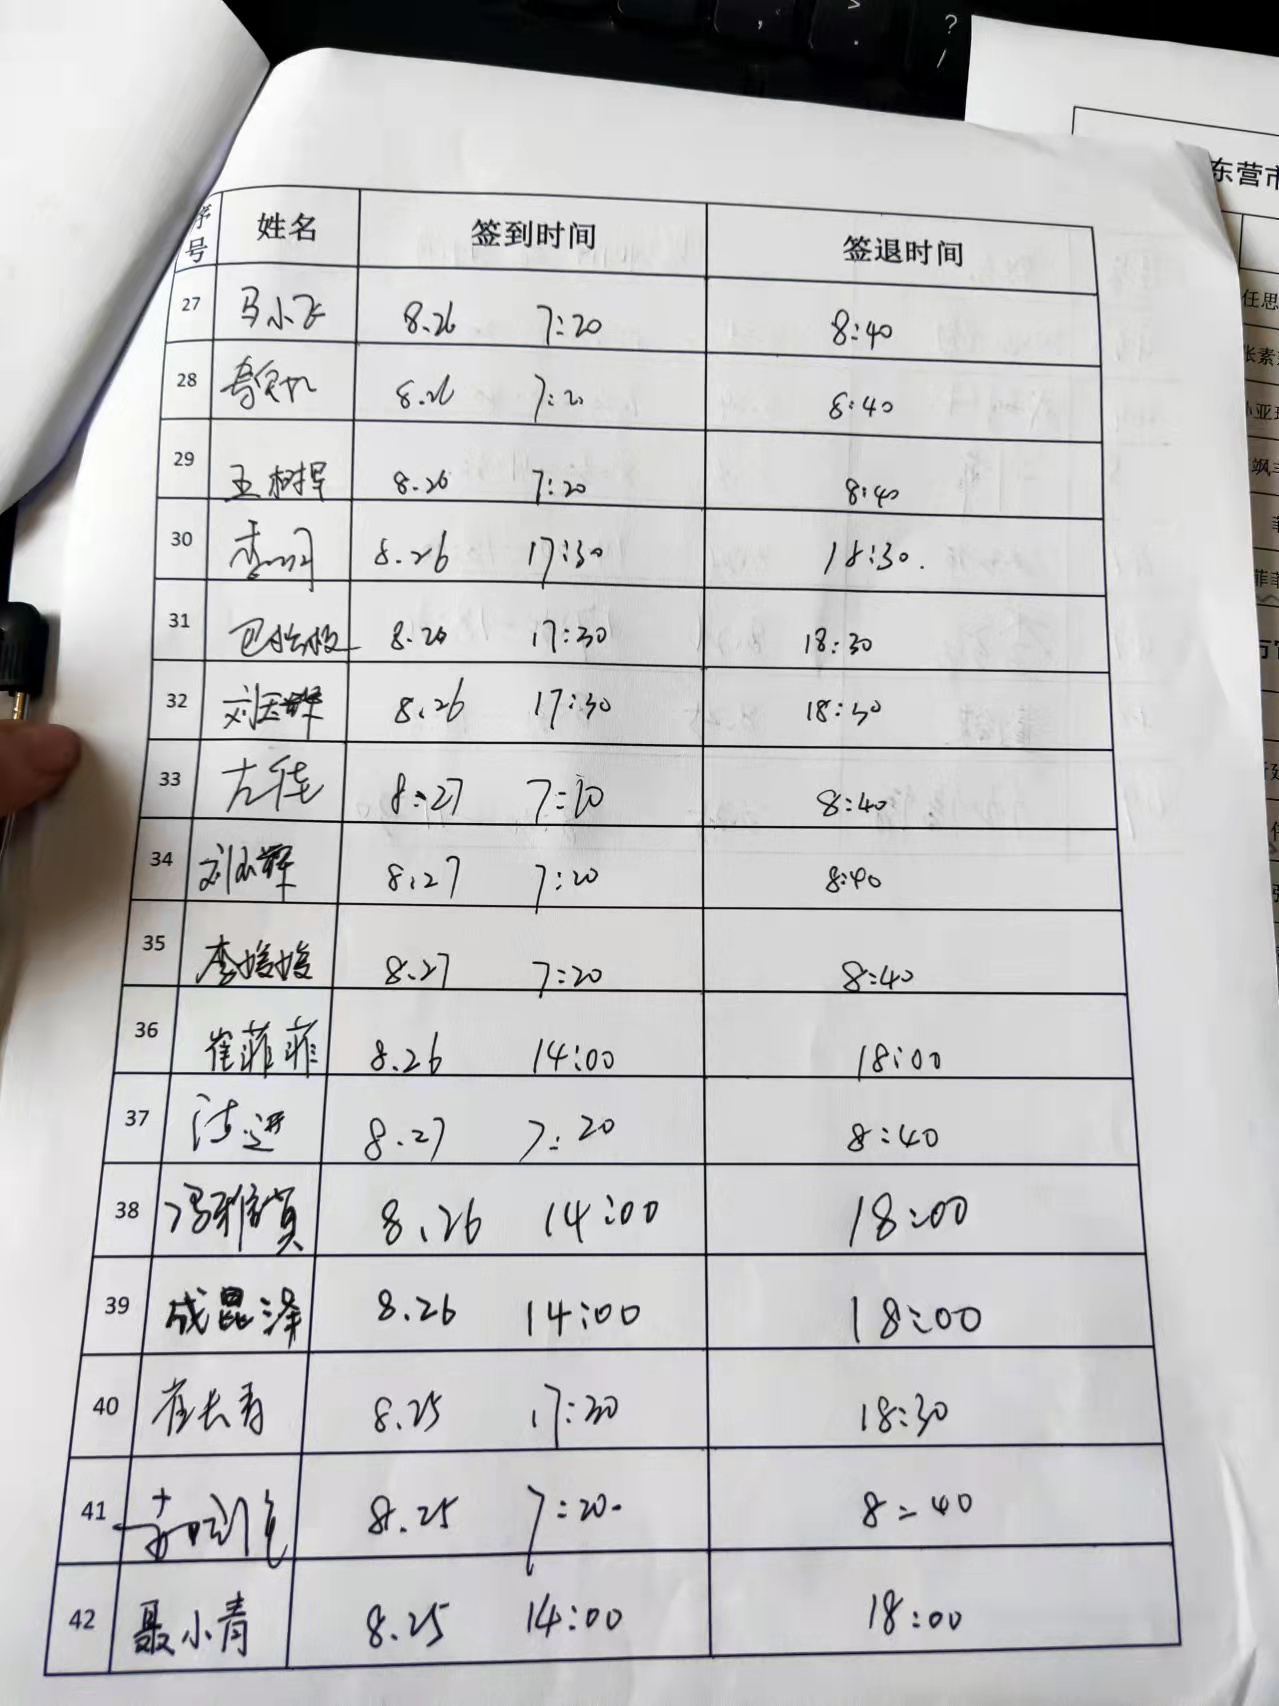 东营市
序号 姓名 签到时间 签退时间
27 马小飞 8.26 7:20 8:40
28 8.26 7:20 8:40
29 王树 8.26 7:20 8:40
30 李 8.26 17:30 18:30.
31 巴 8.26 17:30 18:30
32 刘 8.26 17:30 18:30
33 8.27 7:20 8:40
34 刘 8.27 7:20 8:40
35 李媛媛 8.27 7:20 8:40
36 崔菲菲 8.26 14:00 18:00
37 8.27 7:20 8:40
38 冯雅 8.26 14:00 18:00
39 成昆泽 8.26 14:00 18:00
40 崔长青 8.25 17:30 18:30
41 8.25 7:20 8:40
42 聂小青 8.25 14:00 18:00
任思
张素